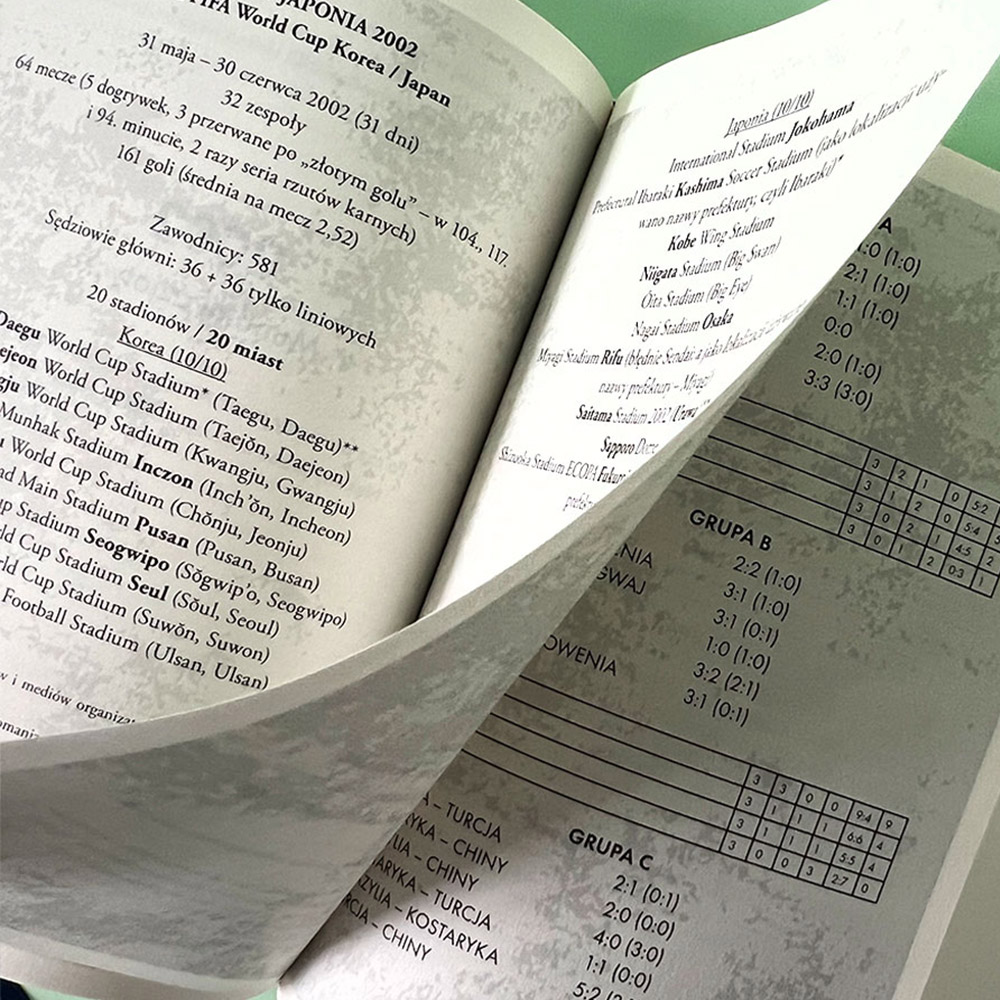 JAPONIA 2002
FIFA World Cup Korea / Japan
31 maja – 30 czerwca 2002 (31 dni)
32 zespoły
64 mecze (5 dogrywek, 3 przerwane po „złotym golu” – w 104., 117.
i 94. minucie, 2 razy seria rzutów karnych)
161 goli (średnia na mecz 2,52)
Zawodnicy: 581
Sędziowie główni: 36 + 36 tylko liniowych
20 stadionów / 20 miast
Korea (10/10)
Daegu World Cup Stadium* (Taegu, Daegu)**
World Cup Stadium (Taejŏn, Daejeon)
World Cup Stadium (Kwangju, Gwangju)
Munhak Stadium Inczon (Inch’ŏn, Incheon)
World Cup Stadium (Chŏnju, Jeonju)
Main Stadium Pusan (Pusan, Busan)
Stadium Seogwipo (Sŏgwip’o, Seogwipo)
Cup Stadium Seul (Sŏul, Seoul)
Cup Stadium (Suwŏn, Suwon)
Football Stadium (Ulsan, Ulsan)
i mediów
Japonia (10/10)
International Stadium Jokohama
Prefectural Ibaraki Kashima Soccer Stadium (jako lokalizacji uży-
wano nazwy prefektury, czyli Ibaraki)*
Kobe Wing Stadium
Niigata Stadium (Big Swan)
Ōita Stadium (Big Eye)
Nagai Stadium Osaka
Miyagi Stadium Rifu (błędnie Sendai; a jako lokalizacji
nazwy prefektury – Miyagi)
Saitama Stadium 2002
Sapporo
Stadium ECOPA
A
1:0 (1:0)
2:1 (1:0)
1:1 (1:0)
0:0
2:0 (1:0)
3:3 (3:0)
3 2 1 0 5:2
3 1 2 0 5:4
3 0 2 1 4:5 2
3 0 1 2 0:3 1
GRUPA B
2:2 (1:0)
3:1 (1:0)
3:1 (0:1)
1:0 (1:0)
3:2 (2:1)
3:1 (0:1)
3 3 0 0 9:4 9
3 1 1 1 6:6 4
3 1 1 1 5:5 4
3 0 0 3 2:7 0
GRUPA C
– TURCJA 2:1 (0:1)
– CHINY 2:0 (0:0)
– CHINY 4:0 (3:0)
– TURCJA 1:1 (0:0)
– KOSTARYKA 5:2
– CHINY